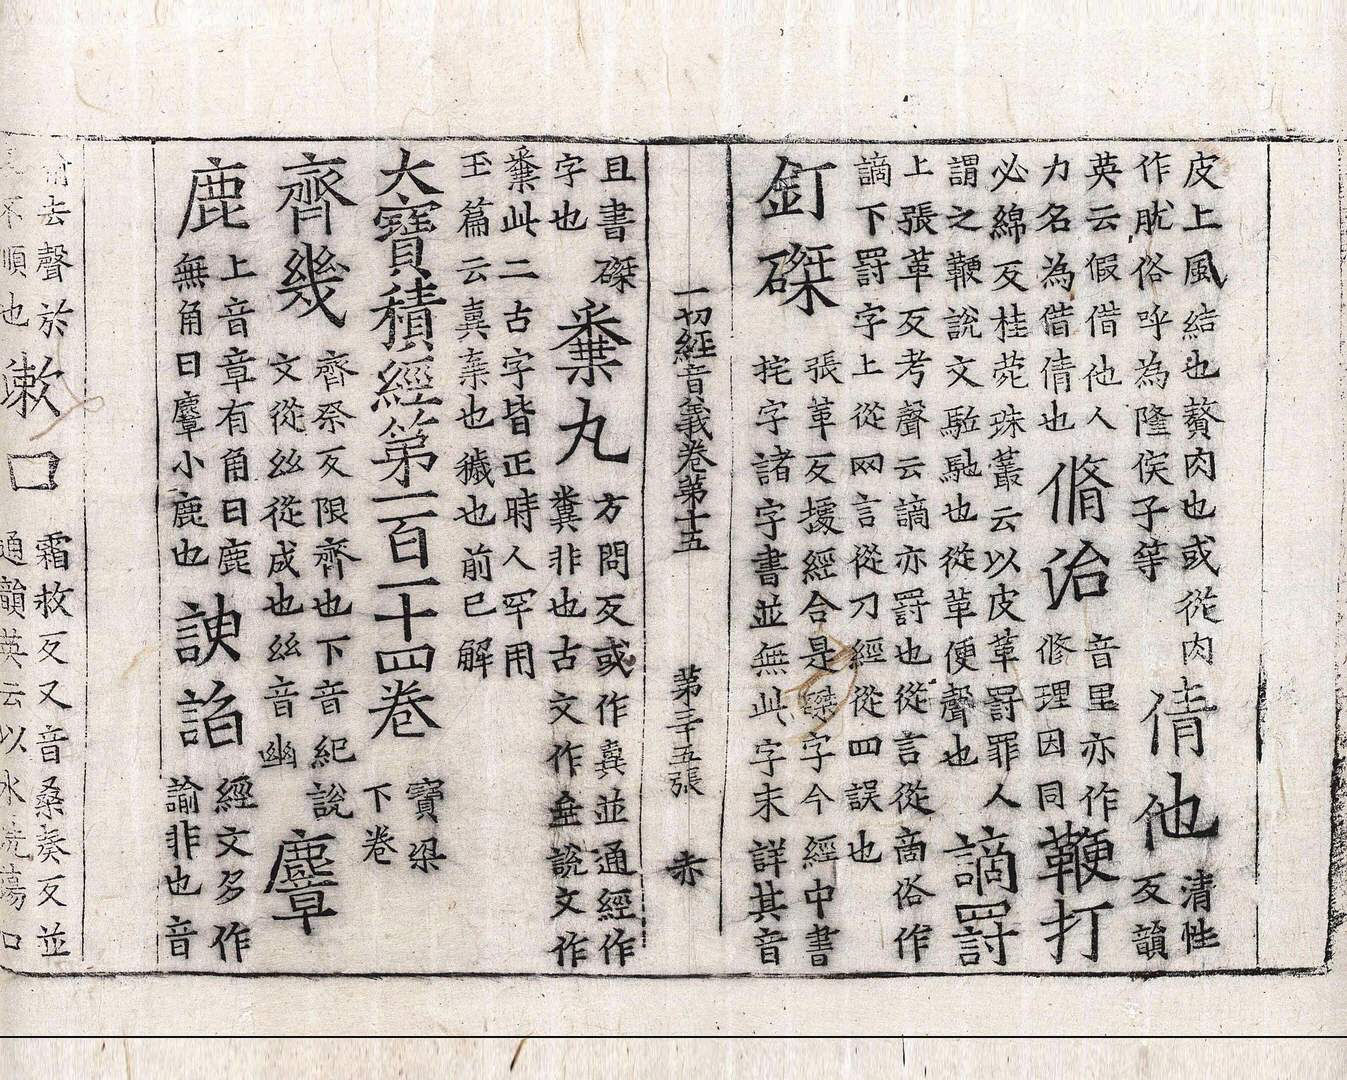 皮上風結也贅肉也或從肉
作肬俗呼為隆侯子等
倩也
清性
反韻
英云假借他人
力名為借倩也
脩治
音里亦作
修理因同
鞭打
必綿反桂菀珠叢云以皮革罰罪人
謂之鞭說文駈馳也從革便聲也
謫罰
上張革反考聲云謫亦罰也從言從啇俗作
謫下罸字上從网言從刀經從四誤也
釘磔
張革反援經合是磔字今經中書
字諸字書並無此字未詳其音
一切經音義卷第十五 第三十五張 赤
且書磔
字也
糞丸
方問反或作並通經作
糞非也古文作說文作
此二古字皆正時人罕用
玉篇云棄也穢也前已解
大寶積經第一百一十四卷
寶梁
下卷
齊幾
齊祭反限齊也下音紀說
文從𢆶從戍也𢆶音幽
麞
鹿
上音章有角曰鹿
無角曰麞小鹿也
諛諂
經文多作
諭非也音
諭去聲於
不順也
漱口
霜救反又音桑奏反並
通韻英云以水洗蕩口